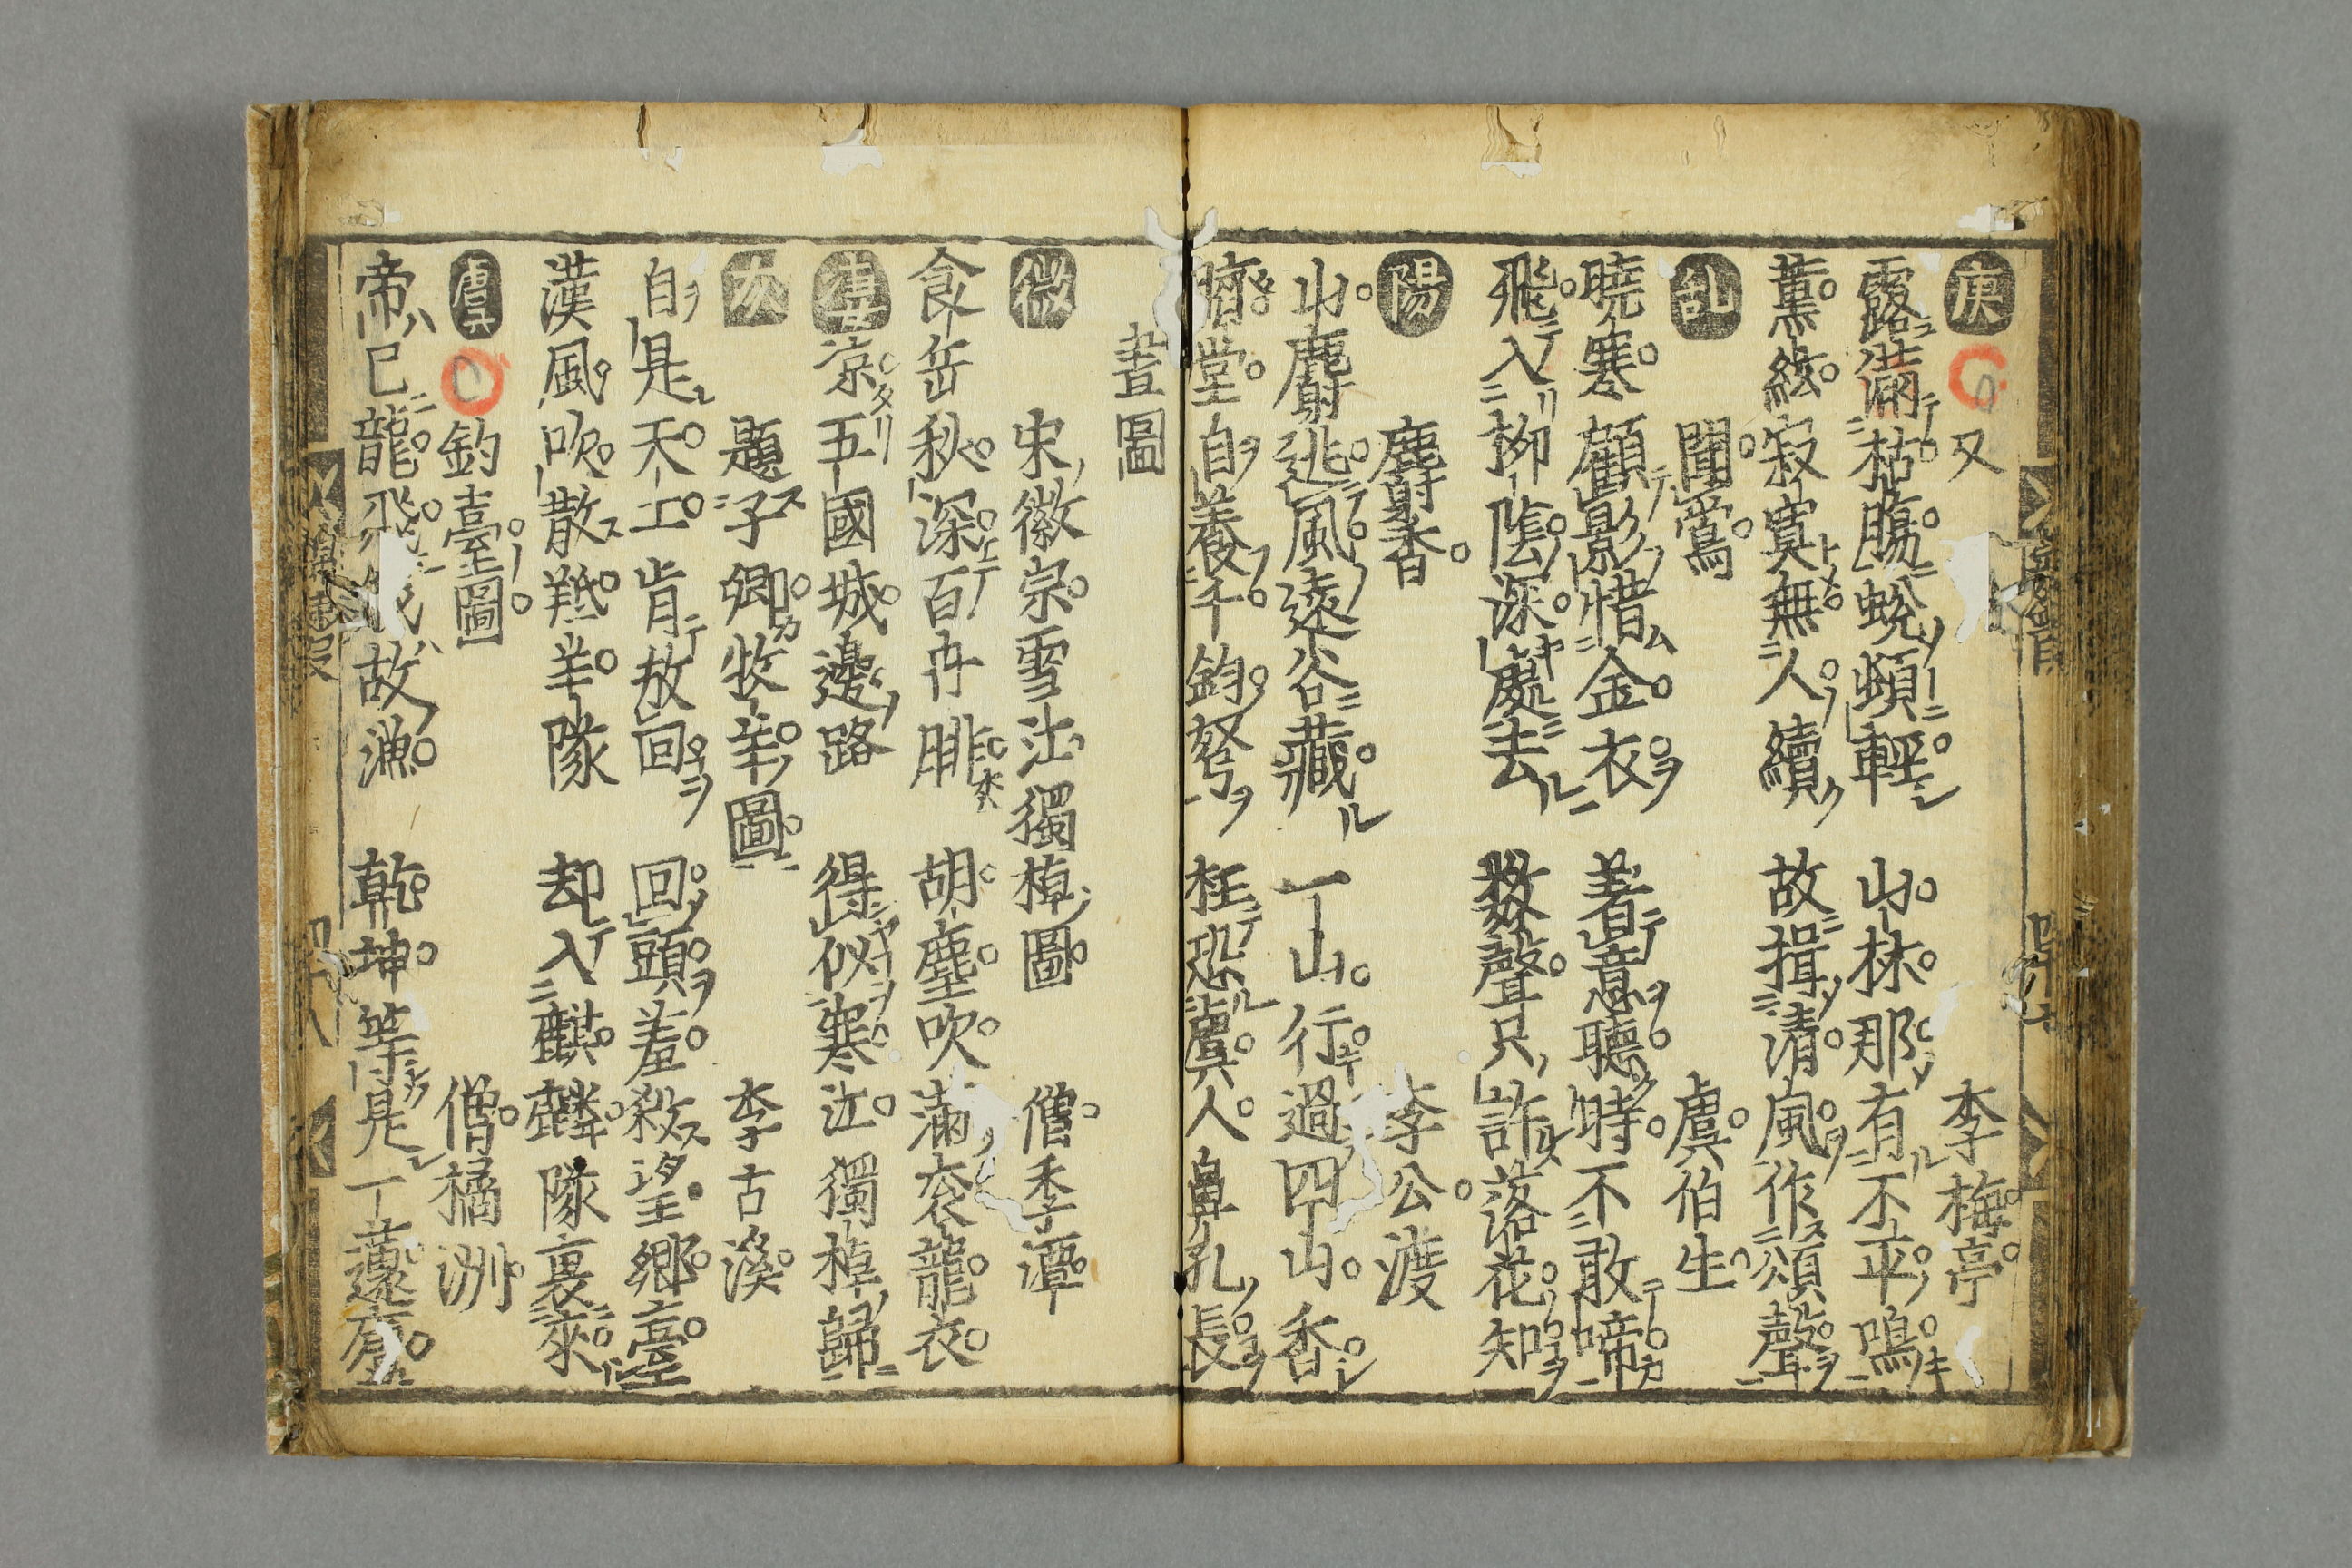 庚 又 李梅亭
露満枯腸蛻頻軽 山林那有不平鳴
薫絃寂寞無人續 故揖清風作頌聲
乱 聞鶯 虞伯生
曉寒顧影惜金衣 着意聽時不敢啼
飛入柳陰深處去 数聲只許落花知
陽 麝香 李公渡
山麝逃風遠谷藏 一山行過四山香
臍堂自養千鈞弩 枉恐虞人鼻孔長
畫圖
微 宋徽宗雪江獨棹圖 僧季潭
食岳秋深百冉腓 胡塵吹満袞龍衣
凄凉五國城邊路 得似寒江獨棹歸
灰 題子卿牧羊圖 李古溪
自是天工肯放回 回頭羞殺望郷臺
漢風吹散羝羊隊 却入麒麟隊裏来
虞 釣臺圖 僧橘洲
帝已龍飛故漁 乾坤等是一蘧廬